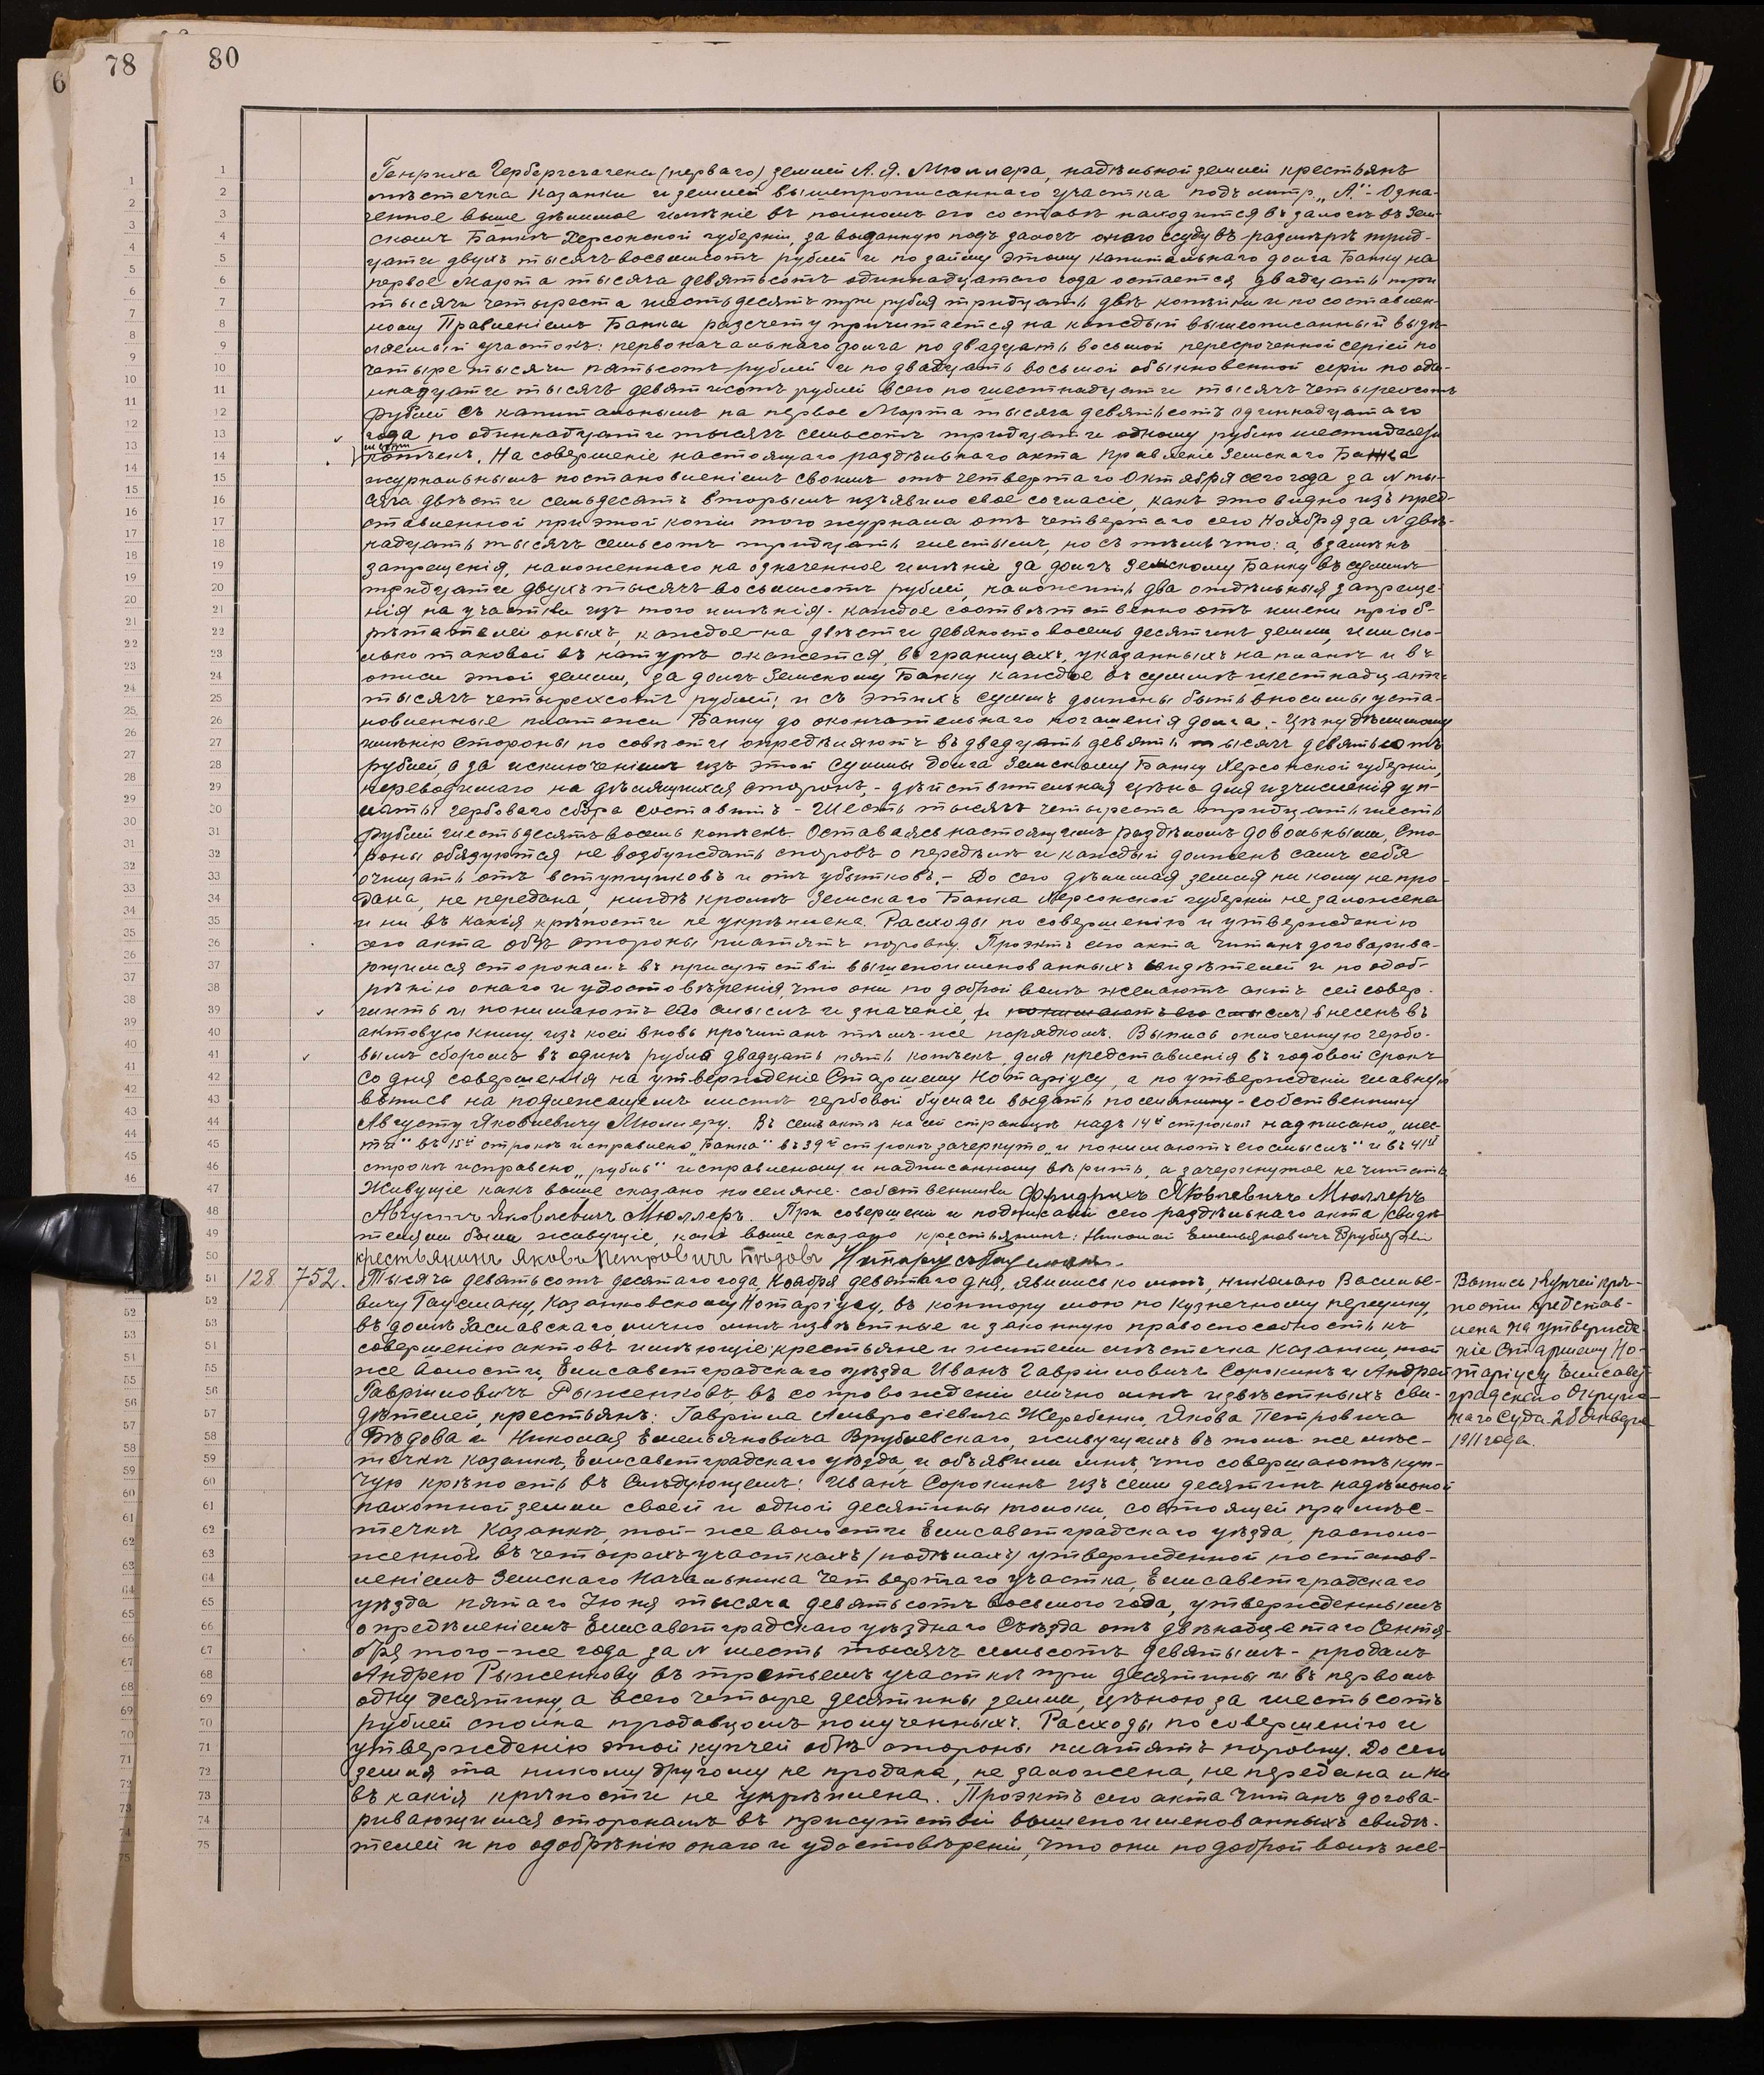 78
80
Генриха Гербергагена (перваго), землей А. Я. Мюллера, надѣльной землей крестьянъ
мѣстечка Казанки и землей вышепрописаннаго участка подъ литр. „А“. Озна-
ченное выше дѣлимое имѣніе въ полномъ его составѣ находится въ залогѣ въ Зем-
скомъ Банкѣ Херсонской губерніи, за выданную подъ залогъ онаго ссуду въ размѣрѣ трид-
цати двухъ тысячъ восьмисотъ рублей и по займу этому капитальнаго долга Банку на
первое Марта тысяча девятьсотъ одиннадцатаго года остается двадцать три
тысячи четыреста шестьдесятъ три рубля тридцать двѣ копѣйки и по составлен-
ному Правленіемъ Банка разсчету причитается на каждый вышеописанный выдѣ-
ляемый участокъ: первоначальнаго долга по двадцать восьмой пересроченной серіей по
четыре тысячи пятьсотъ рублей и по двадцать восьмой обыкновенной серіи по оди-
надцати тысячъ девятисотъ рублей всего по шестнадцати тысячъ четырехсотъ
рублей съ капитальнымъ на первое Марта тысяча девятьсотъ одиннадцатаго
года по одиннадцати тысячъ семьсотъ тридцати одному рублю шестидесяти
шести
копѣекъ. На совершеніе настоящаго раздѣльнаго акта Правленіе Земскаго Банка
журнальнымъ постановленіемъ своимъ отъ четвертаго Октября сего года за N ты-
сяча двѣсти семьдесятъ вторымъ изъявило свое согласіе, какъ это видно изъ пред-
ставленной при этой копіи того журнала отъ четвертаго сего Ноября за N двѣ-
надцать тысячъ семьсотъ тридцать шестымъ, но съ тѣмъ что: а, взамѣнъ
запрещенія, наложеннаго на означенное имѣніе за долгъ Земскому Банку въ суммѣ
тридцати двухъ тысячъ восьмисотъ рублей, наложить два отдѣльныя запреще-
нія на участки изъ того имѣнія. каждое соотвѣтственно отъ имени пріоб-
рѣтателей оныхъ, каждое на двѣсти девяносто восемь десятинъ земли, или ско-
лько таковой въ натурѣ окажется, въ границахъ, указанныхъ на планѣ и въ
описи этой земли, за долгъ Земскому Банку каждое въ суммѣ шестнадцати
тысячъ четырехсотъ рублей; и съ этихъ суммъ должны быть вносимы уста-
новленные платежи Банку до окончательнаго погашенія долга. - Цѣну дѣлимому
имѣнію стороны по совѣсти опредѣляютъ въ двадцать девять тысячъ девятьсотъ
рублей, а за исключеніемъ изъ этой суммы долга Земскому Банку Херсонской губерніи,
переводимаго на дѣлящихся сторонъ, - дѣйствительная цѣна для изчисленія уп-
латы гербоваго сбора составитъ - шесть тысячъ четыреста тридцать шесть
рублей шестьдесятъ восемь копѣекъ. Оставаясь настоящимъ раздѣломъ довольными, Сто-
роны обязуются не возбуждать споровъ о передѣлѣ и каждый долженъ самъ себя
очищать отъ вступщиковъ и отъ убытковъ. - До сего дѣлимая земля никому не про-
дана, не передана, нигдѣ кромѣ Земскаго Банка Херсонской губерніи не заложена
и ни въ какія крѣпости не укрѣплена. Расходы по совершенію и утвержденію
сего акта обѣ стороны платятъ поровну. Проэктъ сего акта читанъ договарива-
ющимся сторонамъ въ присутствіи вышепоименованныхъ свидѣтелей и по одоб-
рѣнію онаго и удостовѣренія, что они по доброй волѣ желаютъ актъ сей совер-
шить и понимаютъ его смыслъ и значеніе, и понимаютъ его смыслъ внесенъ въ
актовую книгу, изъ коей вновь прочитанъ тѣмъ-же порядкомъ. Выпись оплоченную гербо-
вымъ сборомъ въ одинъ рубль двадцать пять копѣекъ, для представленія въ годовой срокъ
со дня совершенія на утвержденіе Старшему Нотаріусу, а по утвержденіи главную
выпись на подлежащемъ листѣ гербовой бумаги выдать поселянину-собственнику
Августу Яковлевичу Мюллеру. Въ семъ актѣ на сей страницѣ надъ 14й строкой надписано „шес-
ти“ въ 15й строкѣ исправлено „Банка“ въ 39й строкѣ зачеркнуто „и понимаютъ его смыслъ“ и въ 41й
строкѣ исправлено „рубль“ исправленному и надписанному вѣрить, а зачеркнутое не читать.
Живущіе какъ выше сказано поселяне-собственники Фридрихъ Яковлевичъ Мюллеръ
Августъ Яковлевичъ Мюллеръ. При совершеніи и подписаніи сего раздѣльнаго акта свидѣ-
телями были живущіе, какъ выше сказано крестьянинъ: Николай Емельяновичъ Врублевскій
крестьянинъ Яковъ Петровичъ Бѣдовъ Нотаріусъ Гаусманъ.
128 752. Тысяча девятьсотъ десятаго года, Ноября девятаго дня, явились ко мнѣ, Николаю Василье-
вичу Гаусману, Казанковскому Нотаріусу, въ контору мою по Кузнечному переулку,
въ домѣ Заславскаго, лично мнѣ извѣстные и законную правоспособность къ
совершенію актовъ имѣющіе: крестьяне и жители мѣстечка Казанки, той
же волости, Елисаветградскаго уѣзда Иванъ Гавріиловичъ Сорокинъ и Андрей
Гавріиловичъ Рыженковъ, въ сопровожденіи лично мнѣ извѣстныхъ сви-
дѣтелей, крестьянъ: Гавріила Амвросіевича Жеребенко, Якова Петровича
Бѣдова и Николая Емельяновича Врублевскаго, живущихъ въ томъ же мѣс-
течкѣ Казанкѣ, Елисаветградскаго уѣзда, и объявили мнѣ, что совершаютъ куп-
чую крѣпость въ слѣдующемъ: Иванъ Сорокинъ изъ семи десятинъ надѣльной
пахотной земли своей и одной десятины толоки, состоящей при мѣс-
течкѣ Казанкѣ, той-же волости Елисаветградскаго уѣзда, располо-
женной въ четырехъ участкахъ (подѣлахъ) утвержденной постанов-
леніемъ Земскаго Начальника Четвертаго участка, Елисаветградскаго
уѣзда пятаго Іюня тысяча девятьсотъ восьмого года, утвержденнымъ
опредѣленіемъ Елисаветградскаго уѣзднаго Съѣзда отъ двѣнадцатаго Сентя-
бря того-же года за N шесть тысячъ семьсотъ девятымъ - продалъ
Андрею Рыженкову въ третьемъ участкѣ три десятины и въ первомъ
одну десятину, а всего четыре десятины земли, цѣною за шестьсотъ
рублей сполна продавцомъ полученныхъ. Расходы по совершенію и
утвержденію этой купчей обѣ стороны платятъ поровну. До сего
земля та никому другому не продана, не заложена, не передана и ни
въ какія крѣпости не укрѣплена. Проэктъ сего акта читанъ догова-
ривающимся сторонамъ въ присутствіи вышепоименованныхъ свидѣ-
телей и по одобрѣнію онаго и удостовѣреніи, что они по доброй волѣ же-
Выпись купчей крѣ-
пости представ-
лена на утвержде-
ніе Старшему Но-
таріусу Елисавет-
градскаго Окруж-
наго Суда 28 Января
1911 года.